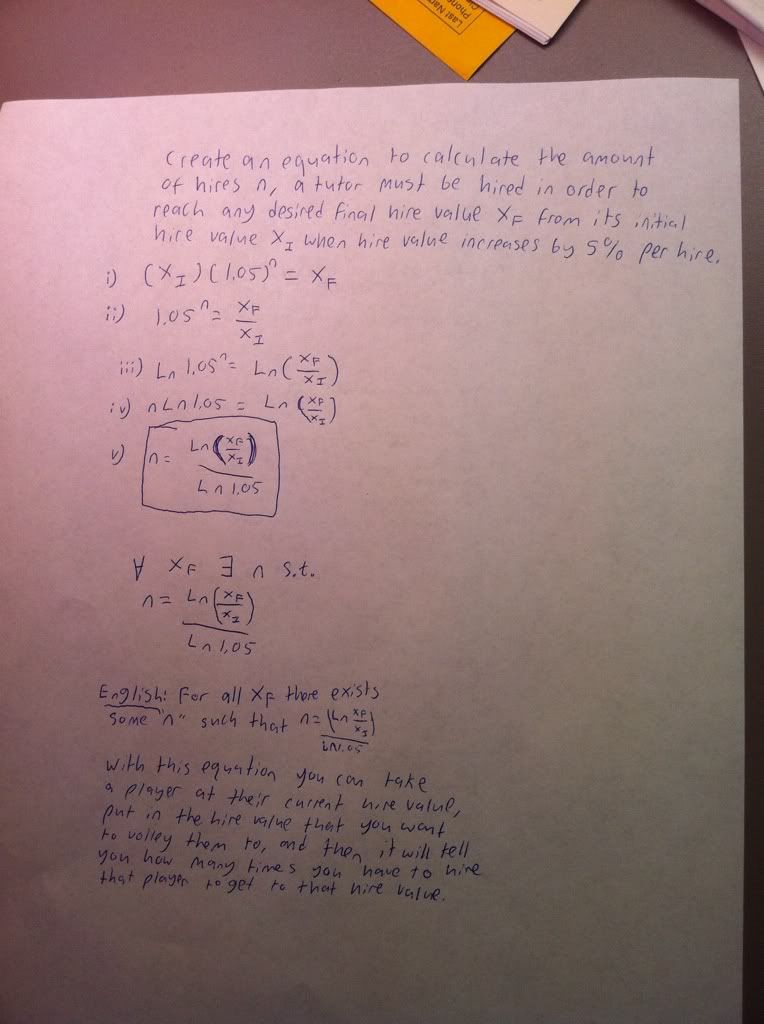 Last Nam
Phone
create an equation to calculate the amount
of hires n, a tutor must be hired in order to
reach any desired final hire value X_F from its initial
hire value X_I when hire value increases by 5% per hire.
i) (X_I)(1.05)^n = X_F
ii) 1.05^n = X_F/X_I
iii) Ln 1.05^n = Ln(X_F/X_I)
iv) n Ln 1.05 = Ln(X_F/X_I)
v) n = Ln(X_F/X_I) / Ln 1.05
∀ X_F ∃ n s.t.
n = Ln(X_F/X_I) / Ln 1.05
English: For all X_F there exists
some "n" such that n = (Ln X_F/X_I) / LN1.05
with this equation you can take
a player at their current hire value,
put in the hire value that you want
to volley them to, and then it will tell
you how many times you have to hire
that player to get to that hire value.